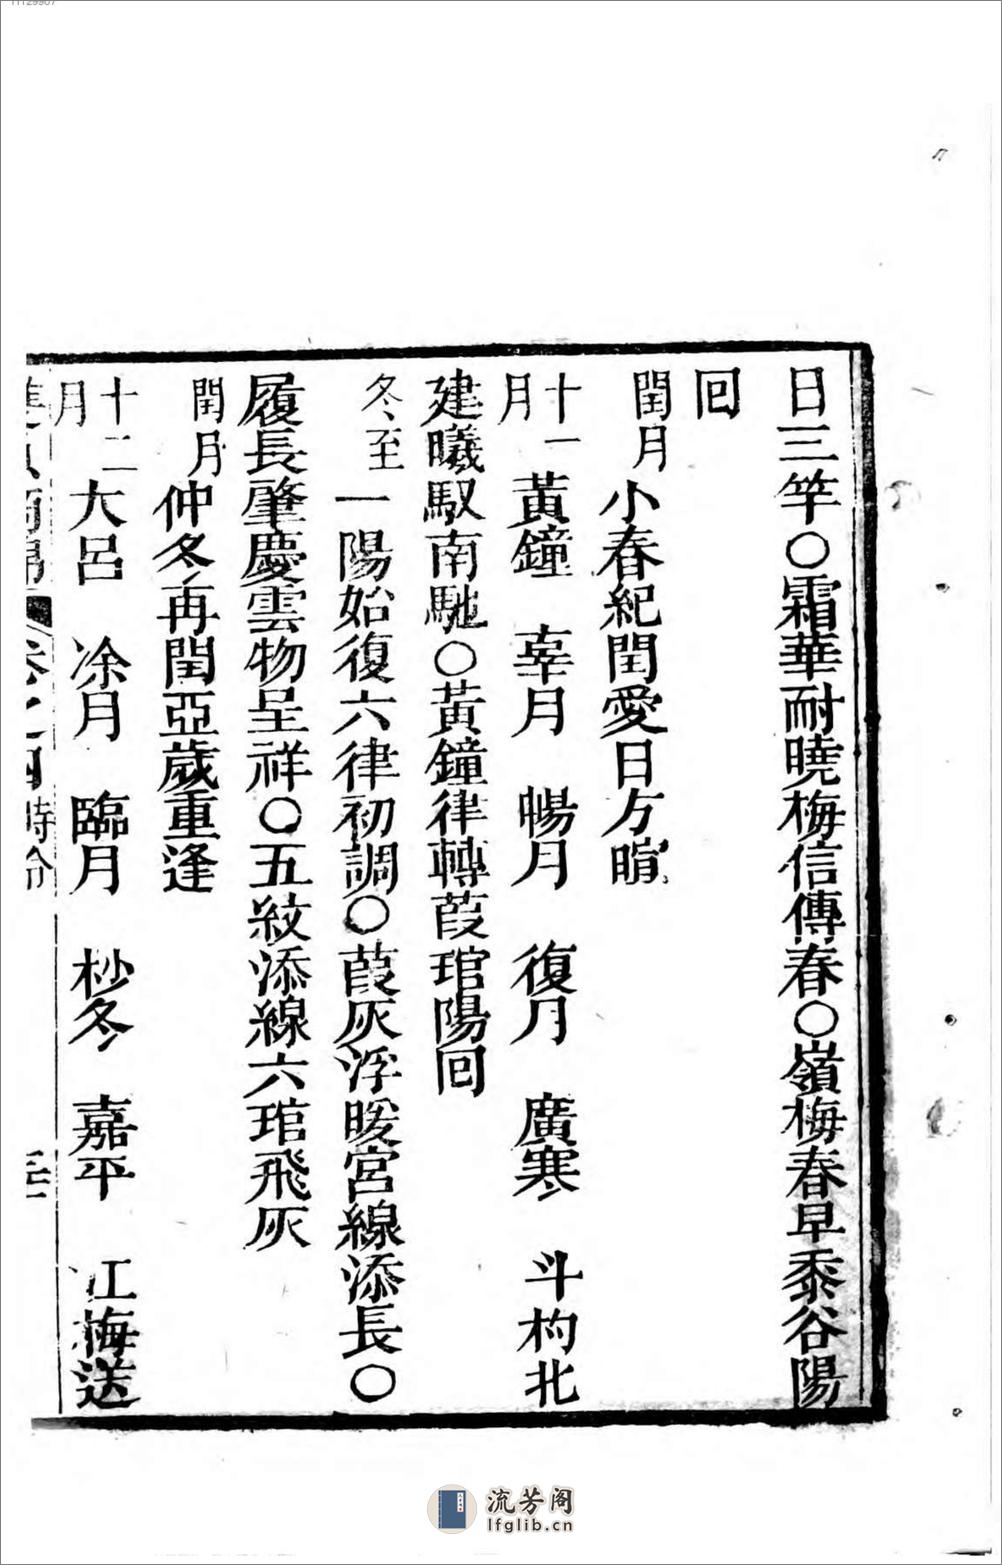 11129907
日三竿〇霜華耐曉梅信傳春〇嶺梅春早黍谷陽
回
閏月 小春紀閏愛日方暄
十一月 黃鐘 辜月 暢月 復月 廣寒 斗杓北
建曦馭南馳〇黃鐘律轉葭琯陽回
冬至 一陽始復六律初調〇葭灰浮暖宮線添長〇
履長肇慶雲物呈祥〇五紋添線六琯飛灰
閏月 仲冬再閏亞歲重逢
十二月 大呂 凃月 臨月 杪冬 嘉平 江梅送
卷之四 時令
流芳阁
lfglib.cn